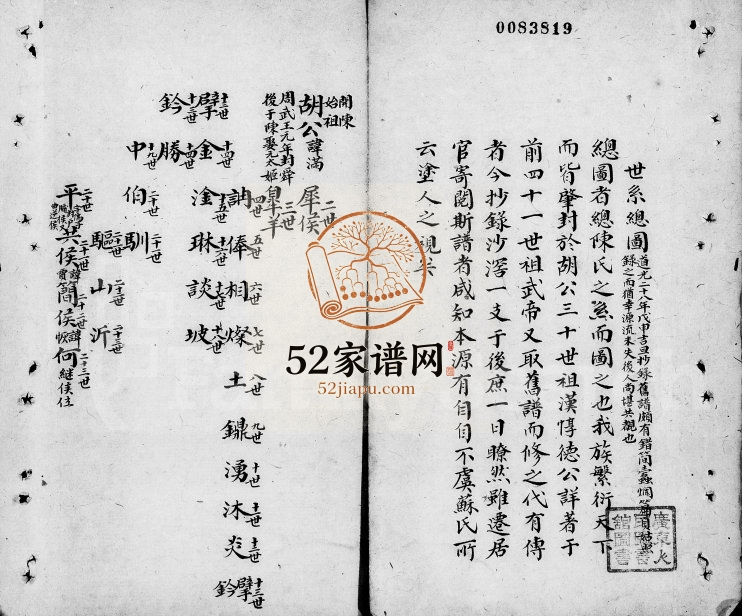 0083819
世系總圖
道光二八年戊申吉旦抄錄舊譜頗有錯簡
錄之而猶幸源流未失後人尚堪共覩也
總圖者總陳氏之系而圖之也我族繁衍天下
而皆肇封於胡公三十世祖漢惇德公詳著于
前四十一世祖武帝又取舊譜而修之代有傳
者今抄錄沙滘一支于後庶一日瞭然雖遷居
官寄閱斯譜者咸知本源有自自不虞蘇氏所
云塗人之視矣
廣東人民圖書館圖書
開陳始祖
胡公諱滿
周武王元年封舜
後于陳娶元太姬
犀侯二世
皋羊三世
四世
詶
俸五世
相六世
燦七世
土八世
鼎九世
湧十世
沐十一世
炎十二世
擘十三世
鈐
擘十三世
金十四世
淦十五世
琳十六世
談十七世
坡十八世
鈐十三世
勝十四世
申十九世
伯二十世
馴
驅二十一世
山二十二世
沂二十三世
平二十世
簡侯二十二世
何二十三世
継侯位
52家谱网
52jiapu.com